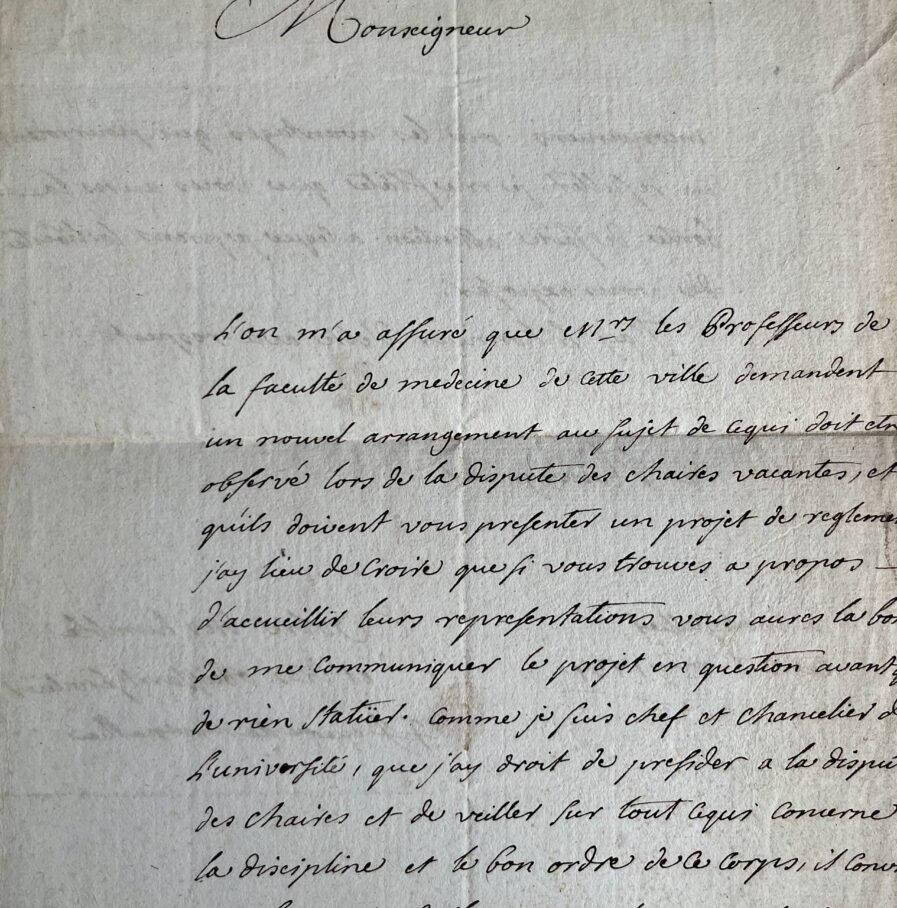 Monseigneur
L'on m'a assuré que Mrs les Professeurs de
la faculté de medecine de cette ville demandent
un nouvel arrangement au sujet de cequi doit etr
observé lors de la dispute des chaires vacantes, et
qu'ils doivent vous presenter un projet de regleme
j'ay lieu de croire que si vous trouves a propos
d'accueillir leurs representations vous aures la bon
de me communiquer le projet en question avant q
de rien statüer. comme je suis chef et chancelier d
L'université, que j'ay droit de presider a la dispu
des chaires et de veiller sur tout cequi concerne
la discipline et le bon ordre de ce corps, il conv